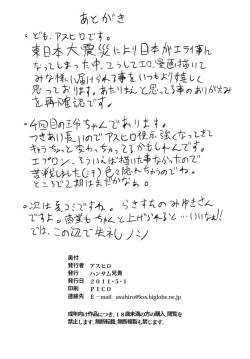 あとがき
○ども、アスヒロです。
東日本大震災により日本がエライ事に
なってしまった中、こうしてエロい漫画描いて
みな様に届けられる事をいつもより嬉しく
思っております。あたりまえと思ってる事のありがたみ
を再確認です。
○4回目の
つきあい長いのでアスヒロ根示強くなってきて
キャラちょっと変わっちゃってるかもしれんです。
エプロン、そういえば描いた事なかったので
苦戦しました(汗)色々隠れちゃうので
ところで2期はまだかなぁ。
○次は
ですよ。商業もちゃんと上げられると…いいなぁ!!
では、この辺で失礼ノシ
奥付
発行者　アスヒロ
発行　ハンサム兄貴
発行日　2011・5・1
印刷　PICO
連絡先　E－mail　asuhiro@kss.biglobe.ne.jp
成年向け作品につき、18歳未満の方の購入、閲覧を
禁止します。無断転載、無断複製も禁じます。